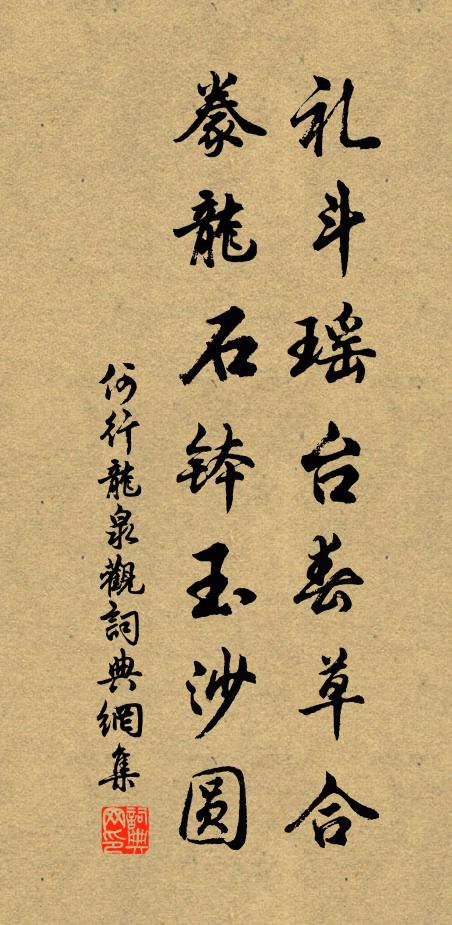 礼斗瑶台春草合
豢龍石钵玉沙圆
何行龍泉觀詞典網集
詞典网印